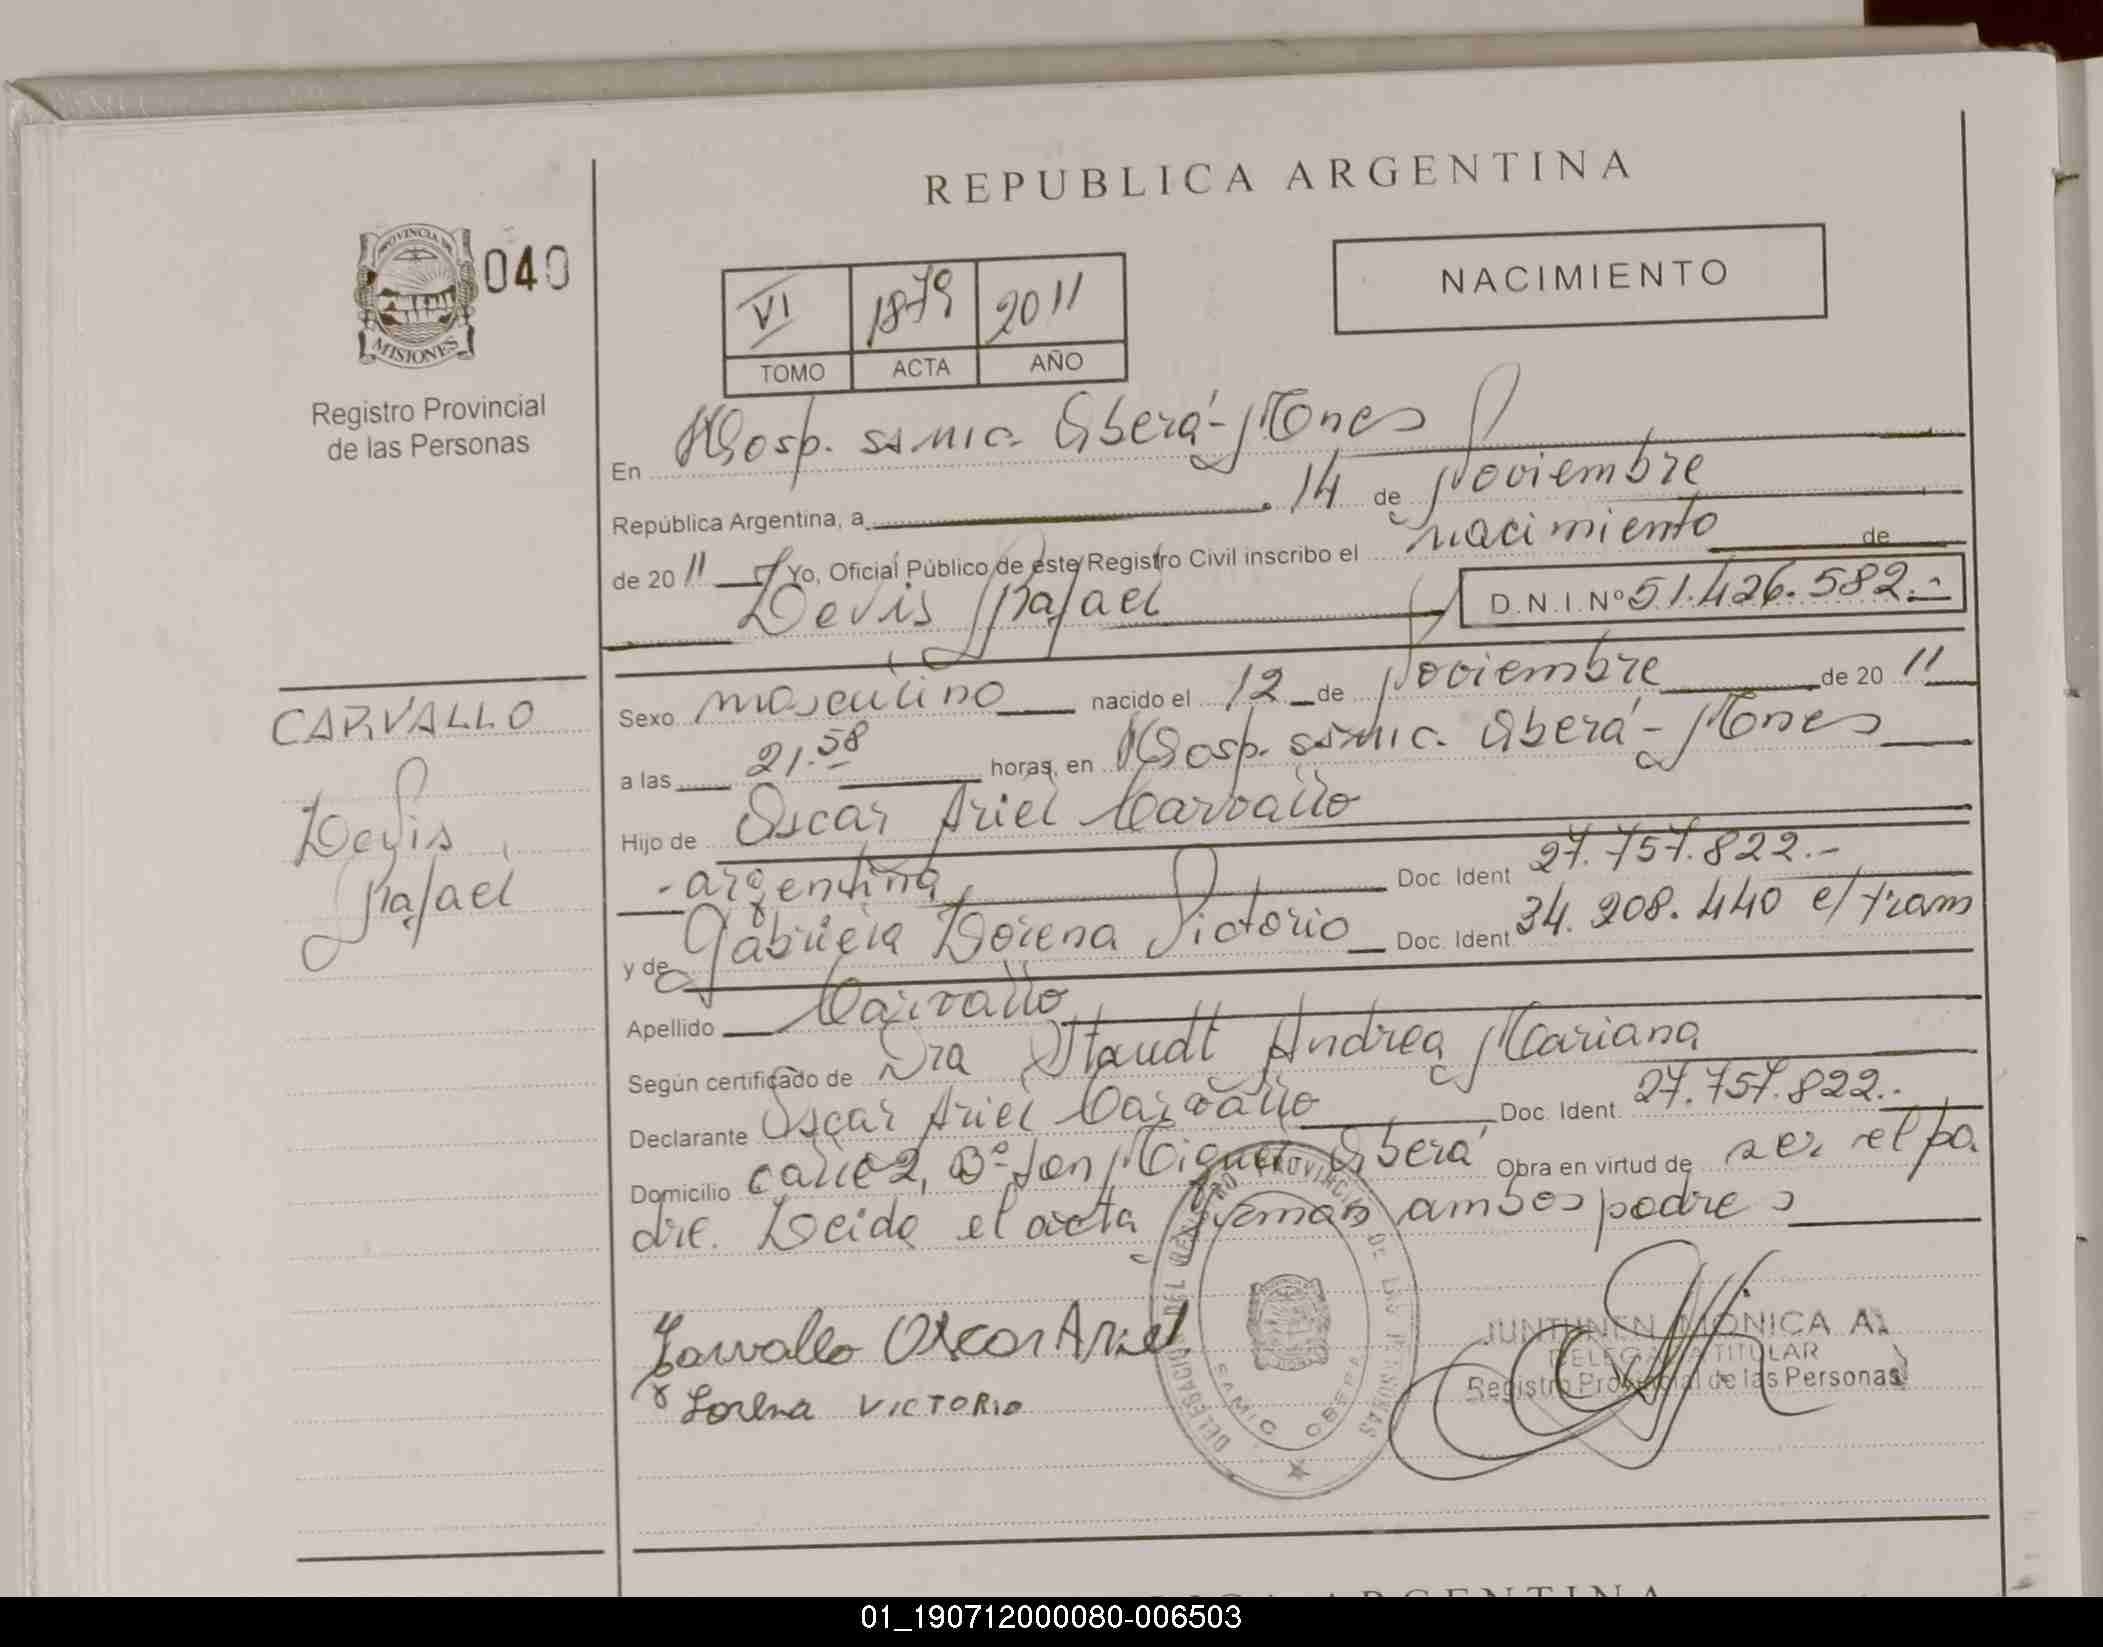 REPUBLICA ARGENTINA
PROVINCIA DE
MISIONES
040
Registro Provincial
de las Personas
VI 1879 2011
TOMO ACTA AÑO
NACIMIENTO
En Hosp. ssmic. Oberá - Mnes
República Argentina, a 14 de Noviembre
de 20 11 Yo, Oficial Público de este Registro Civil inscribo el nacimiento de
Rafael D.N.I.Nº 51.426.582.-
Sexo masculino nacido el 12 de Noviembre de 20 11
CARVALLO
a las 21.58 horas, en Hosp. ssmic. Oberá - Mnes
Hijo de Oscar Ariel Carvallo
Rafael
- argentina Doc. Ident 27.757.822.-
y de Gabriela Lorena Victorio Doc. Ident. 34.208.440 e/tram
Apellido Carvallo
Según certificado de Dra Staudt Andrea Mariana
Declarante Oscar Ariel Carvallo Doc. Ident. 27.757.822.-
Domicilio calle 2, Bº San Miguel Oberá Obra en virtud de ser el pa
dre. Leida el acta firman ambos padres
Carvallo Oscar Ariel
Lorena VICTORIO
DELEGACION DEL REGISTRO PROVINCIAL DE LAS PERSONAS
SAMIC OBERA
JUNTUNEN MONICA A.
DELEGADA TITULAR
Registro Provincial de las Personas
ARGENTINA
01_190712000080-006503